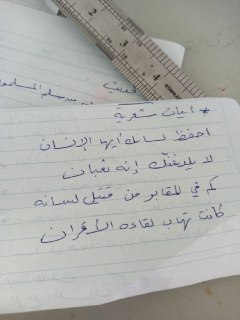 * ابيات شعرية
احفظ لسانك أيها الإنسان
لا يلدغنك إنه ثعبان
كم في المقابر من قتيل لسانه
كانت تهاب لقاءه الأقران